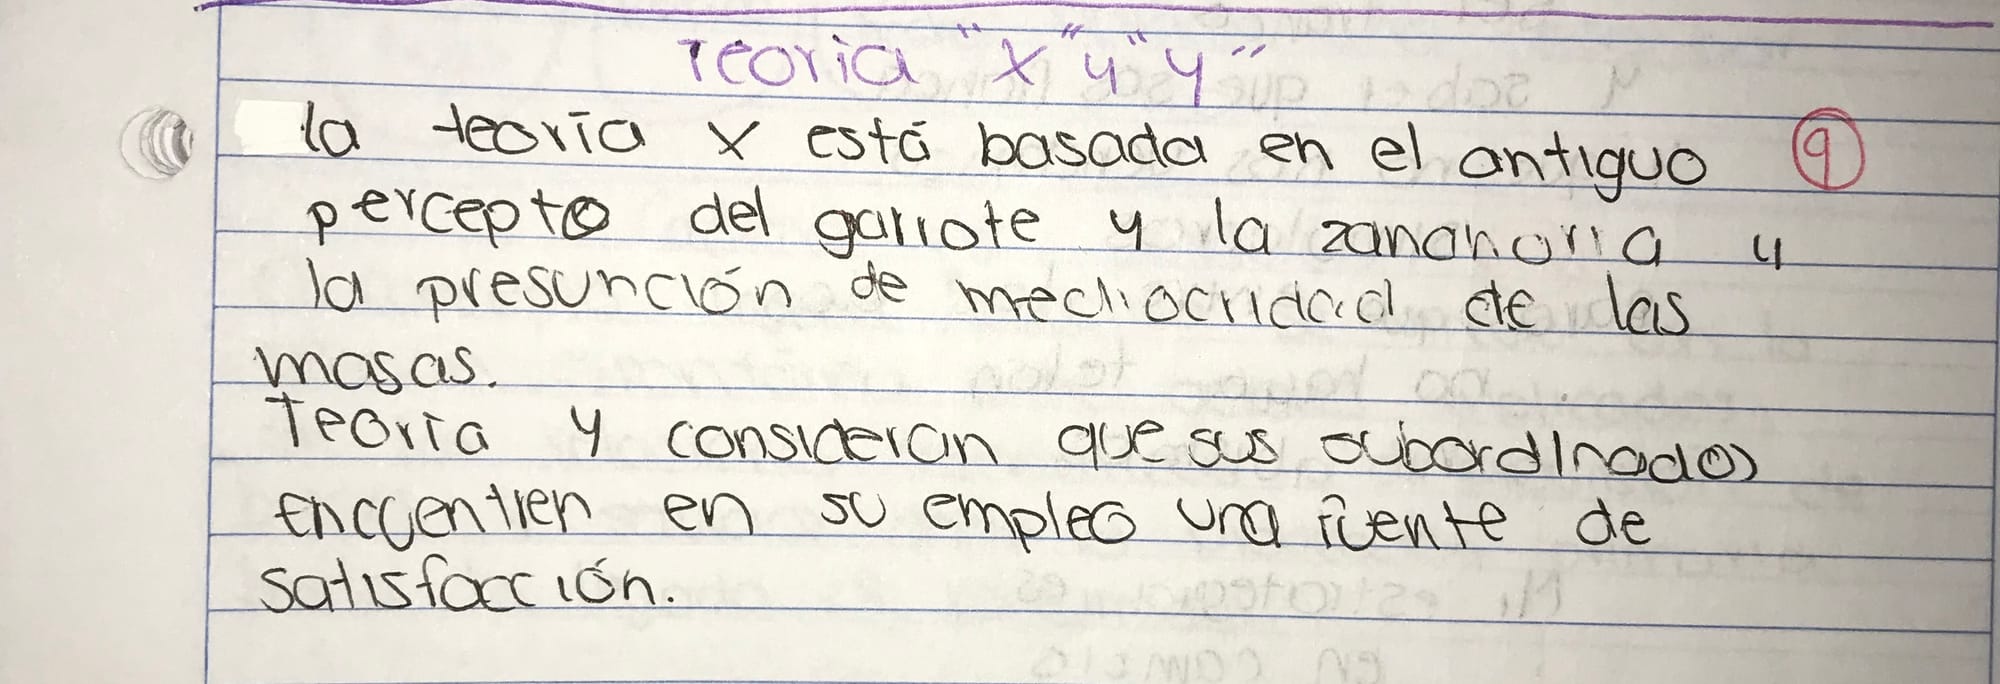 Teoria "X" y "Y"
la teoría X está basada en el antiguo 9
percepto del garrote y la zanahoria y
la presunción de mediocridad de las
masas.
Teoría Y consideran que sus subordinados
encuentren en su empleo una fuente de
satisfacción.